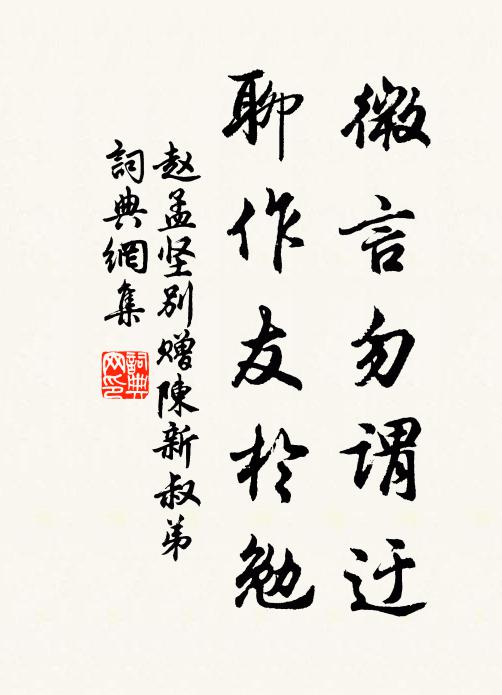 微言勿謂迂
聊作友於勉
赵孟坚别赠陳新叔弟
詞典網集
詞典网印